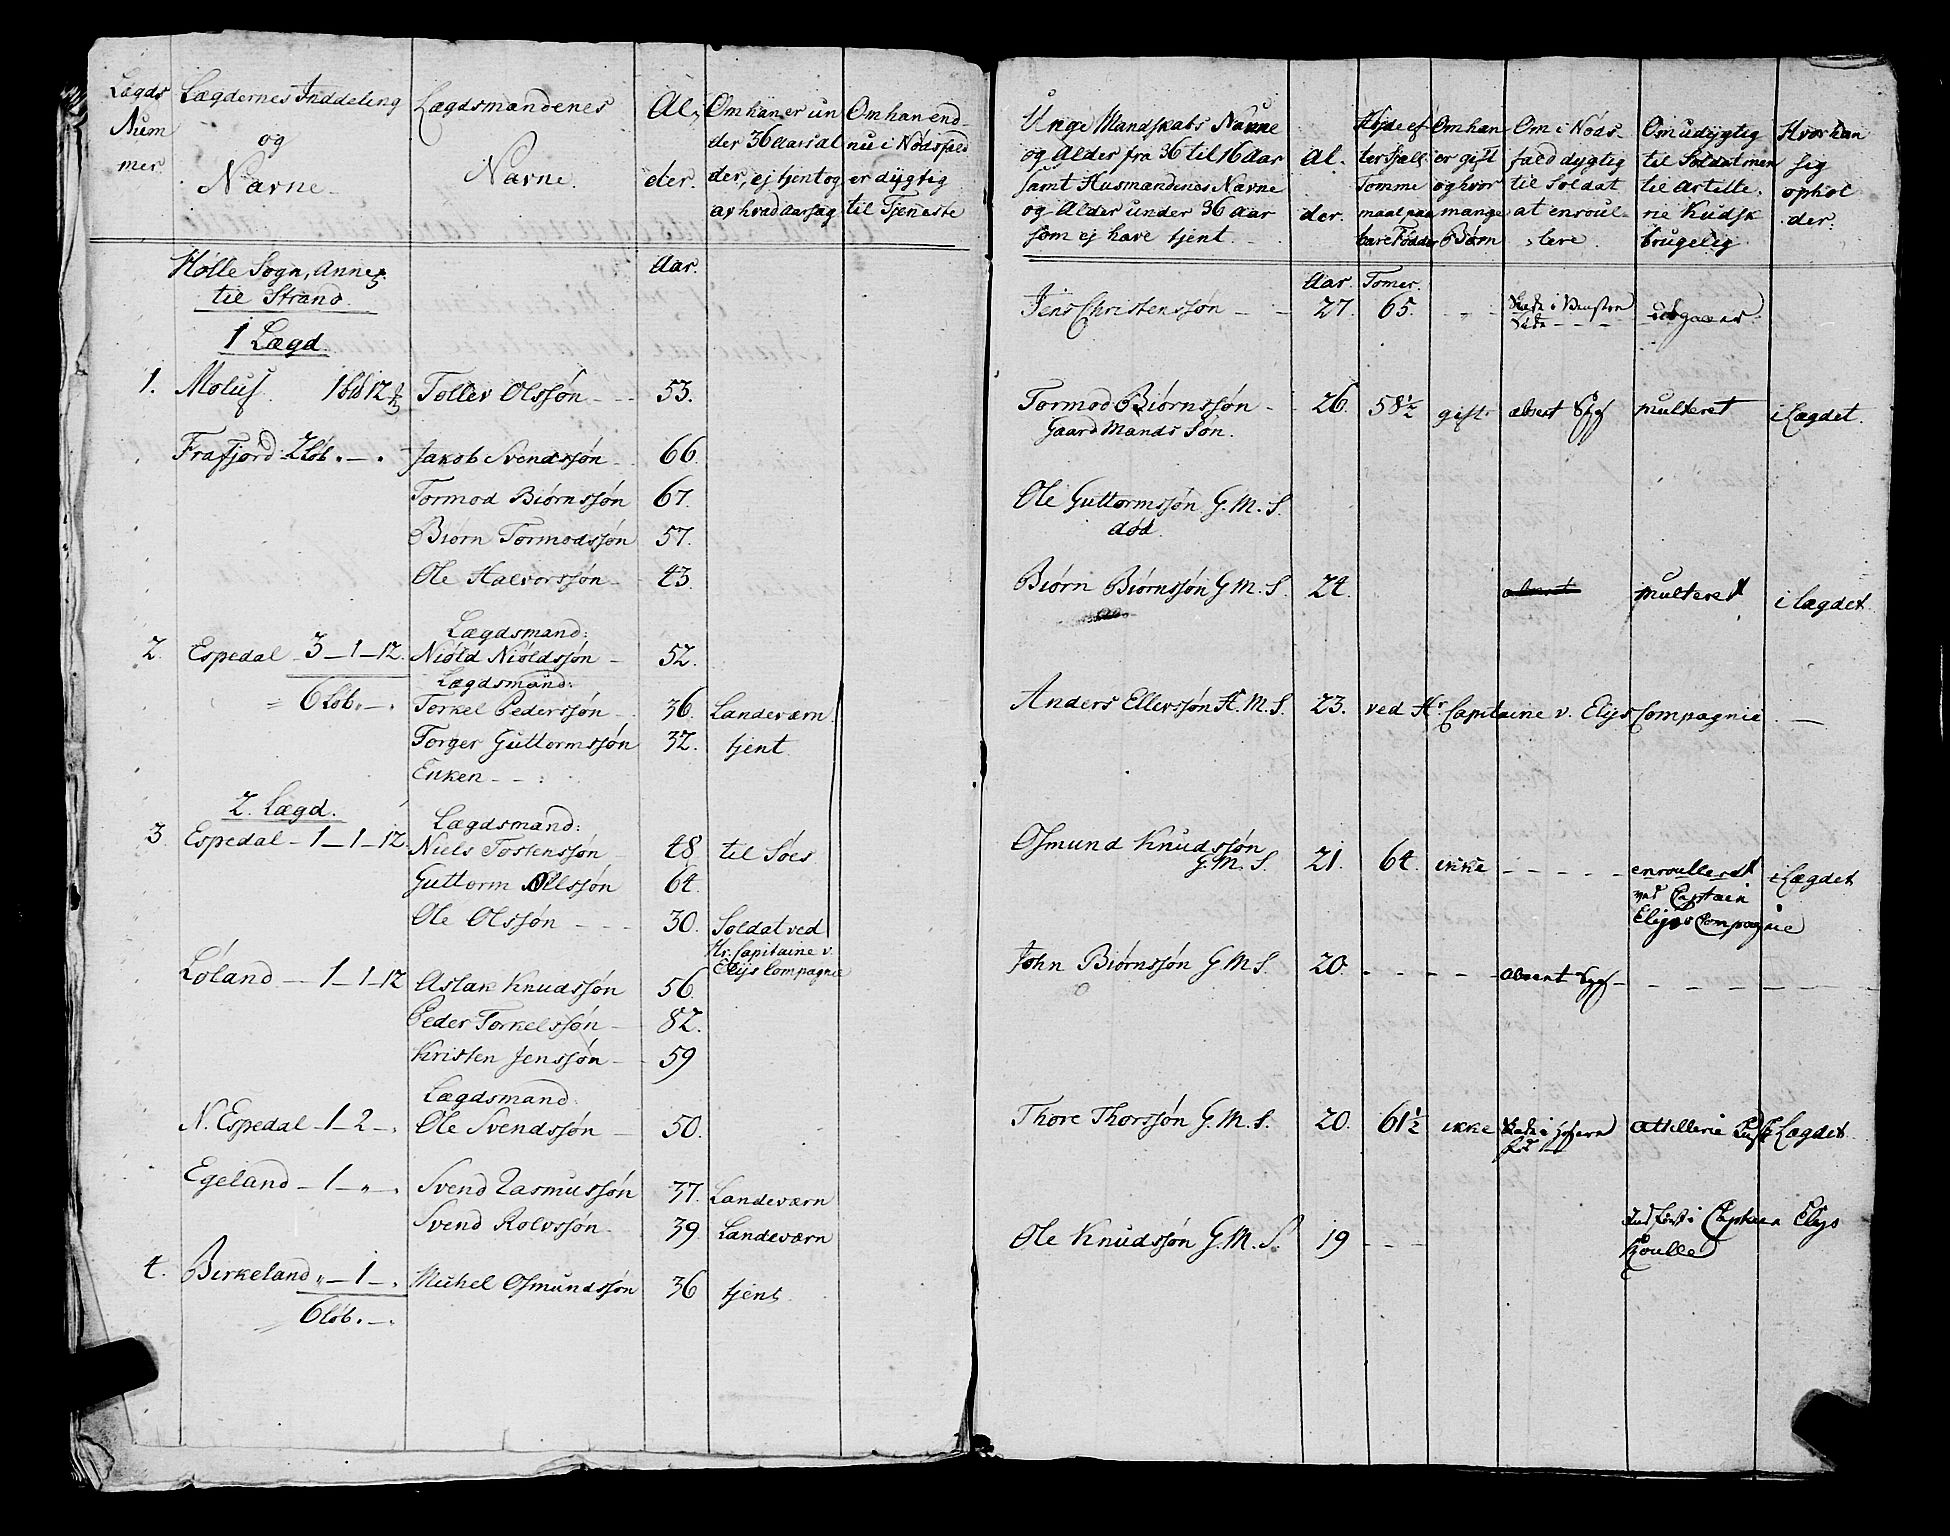 Lægds
Num
mer.
Lægdernes Inddeling
og
Navne
Lægdsmandenes
Navne.
Al-
der.
Om han er un
der 36 Aars al
der, ej tjent og
av hvad Aarsag
Om han end-
nu i Nødsfald
er dygtig
til Tjeneste
Hølle Sogn, Annex
til Strand.
Aar.
1 Lægd.
1. Moluf. 1 Løb 12 Tollev Olssøn 53.
Frafjord 2 Løb. Jakob Svendssøn 66
Tormod Biørnssøn 67.
Biørn Tormodssøn 57.
Ole Halvorssøn 43.
Lægdsmand:
2. Espedal 3-1-12. Niøld Niøldssøn 52.
Lægdsmand:
6 Løb. Torkel Pederssøn 36. Landeværn
Torger Guttormssøn 32. tjent.
Enken
2. Lægd.
Lægdsmand:
3 Espedal 1-1-12 Niels Tostenssøn 48 til Søes
Guttorm Olssøn 64.
Ole Olssøn 30. Soldat ved
Hr. Capitaine v.
Elijs Compagnie
Løland 1-1-12 Aslak Knudssøn 56.
Peder Torkelssøn 82.
Kristen Jenssøn 59
Lægdsmand:
N. Espedal 1-2 Ole Svendssøn 50.
Egeland 1 Svend Rasmussøn 37. Landeværn
Svend Rolvssøn 39 Landeværn
4. Birkeland 1 Michel Osmundssøn 36 tjent
6 Løb.
Unge Mandskabs Navne
og Alder fra 36 til 16 Aar
samt Husmandenes Navne
og Alder under 36 Aar
som ej have tjent.
Al.
der.
Højde ef
ter Sjæll.
Tomme
maal paa
bare Fødder
Om han
er gift
og hvor
mange
Børn
Om i Nøds-
fald dygtig
til Soldat
at enroul-
lere.
Om udygtig
til Soldat men
til Artille.
rie Kudsk
brugelig
Hvor han
sig
ophol
der.
Aar. Tomer.
Jens Christenssøn 27. 65. udgaaer
Tormod Biørnssøn 26. 58½ gift absent multeret i Lægdet.
Gaard Mands Søn.
Ole Guttormssøn G.M.S.
død.
Biørn Biørnssøn G.M.S. 24. absent multeret i lægdet
Anders Ellevssøn H.M.S. 23. ved Hr. Capitaine v. Elijs Compagnie
Osmund Knudssøn
G.M.S. 21. 64. ikke enroulleret i Lægdet
ved Captain
Elijes Compagnie
John Biørnssøn G.M.S. 20. absent
Thore Thorssøn G.M.S. 20. 61½ ikke Attillerie Kusk Lægdet
Ole Knudssøn G.M.S. 19 Indført i Captain Elijs
Roulle